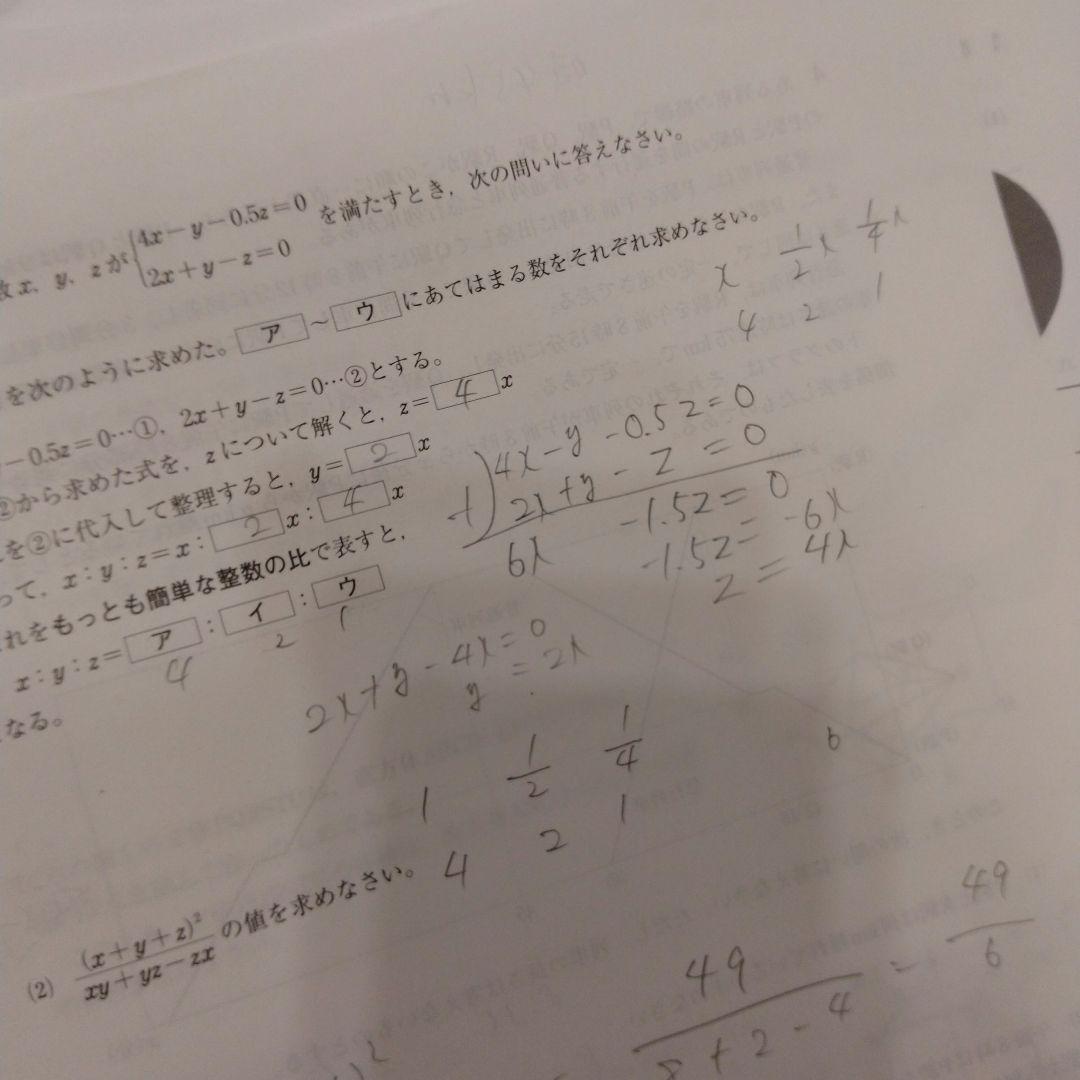 数x, y, zが{4x-y-0.5z=0
2x+y-z=0 を満たすとき，次の問いに答えなさい。
を次のように求めた。ア～ウにあてはまる数をそれぞれ求めなさい。
-0.5z=0…①, 2x+y-z=0…②とする。
②から求めた式を，zについて解くと，z=4x
を②に代入して整理すると，y=2x
って，x:y:z=x:2x:4x
れをもっとも簡単な整数の比で表すと，
x:y:z=ア:イ:ウ
4 2 1
なる。
x 1/2x 1/4x
4 2 1
+) 4x-y-0.5z=0
2x+y-z=0
6x -1.5z=0
-1.5z=-6x
z=4x
2x+y-4x=0
y=2x
1 1/2 1/4
4 2 1
6
(2) (x+y+z)²/xy+yz-zx の値を求めなさい。
49/8+2-4 = 49/6